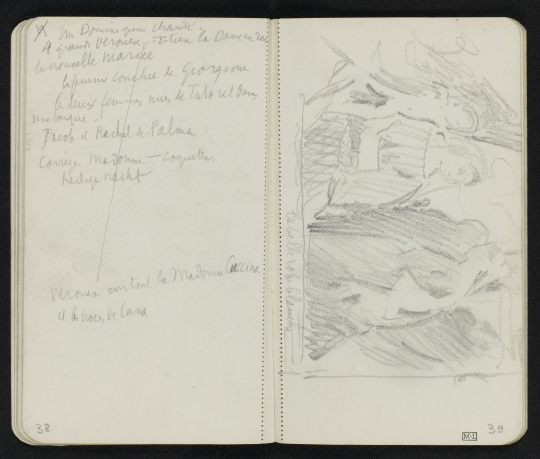 Un Dominiquin Charité.
4 grands Véronèse. Titien la Dame en
la nouvelle Mariée
la femme couchée de Giorgione
les deux femmes nues de Tintoret dans
une barque.
Jacob et Rachel de Palma
Corrège Madonne — coquettes
heilige nacht
Véronèse surtout la Madonne Cuccina
et les noces de Cana
38
39
M-L